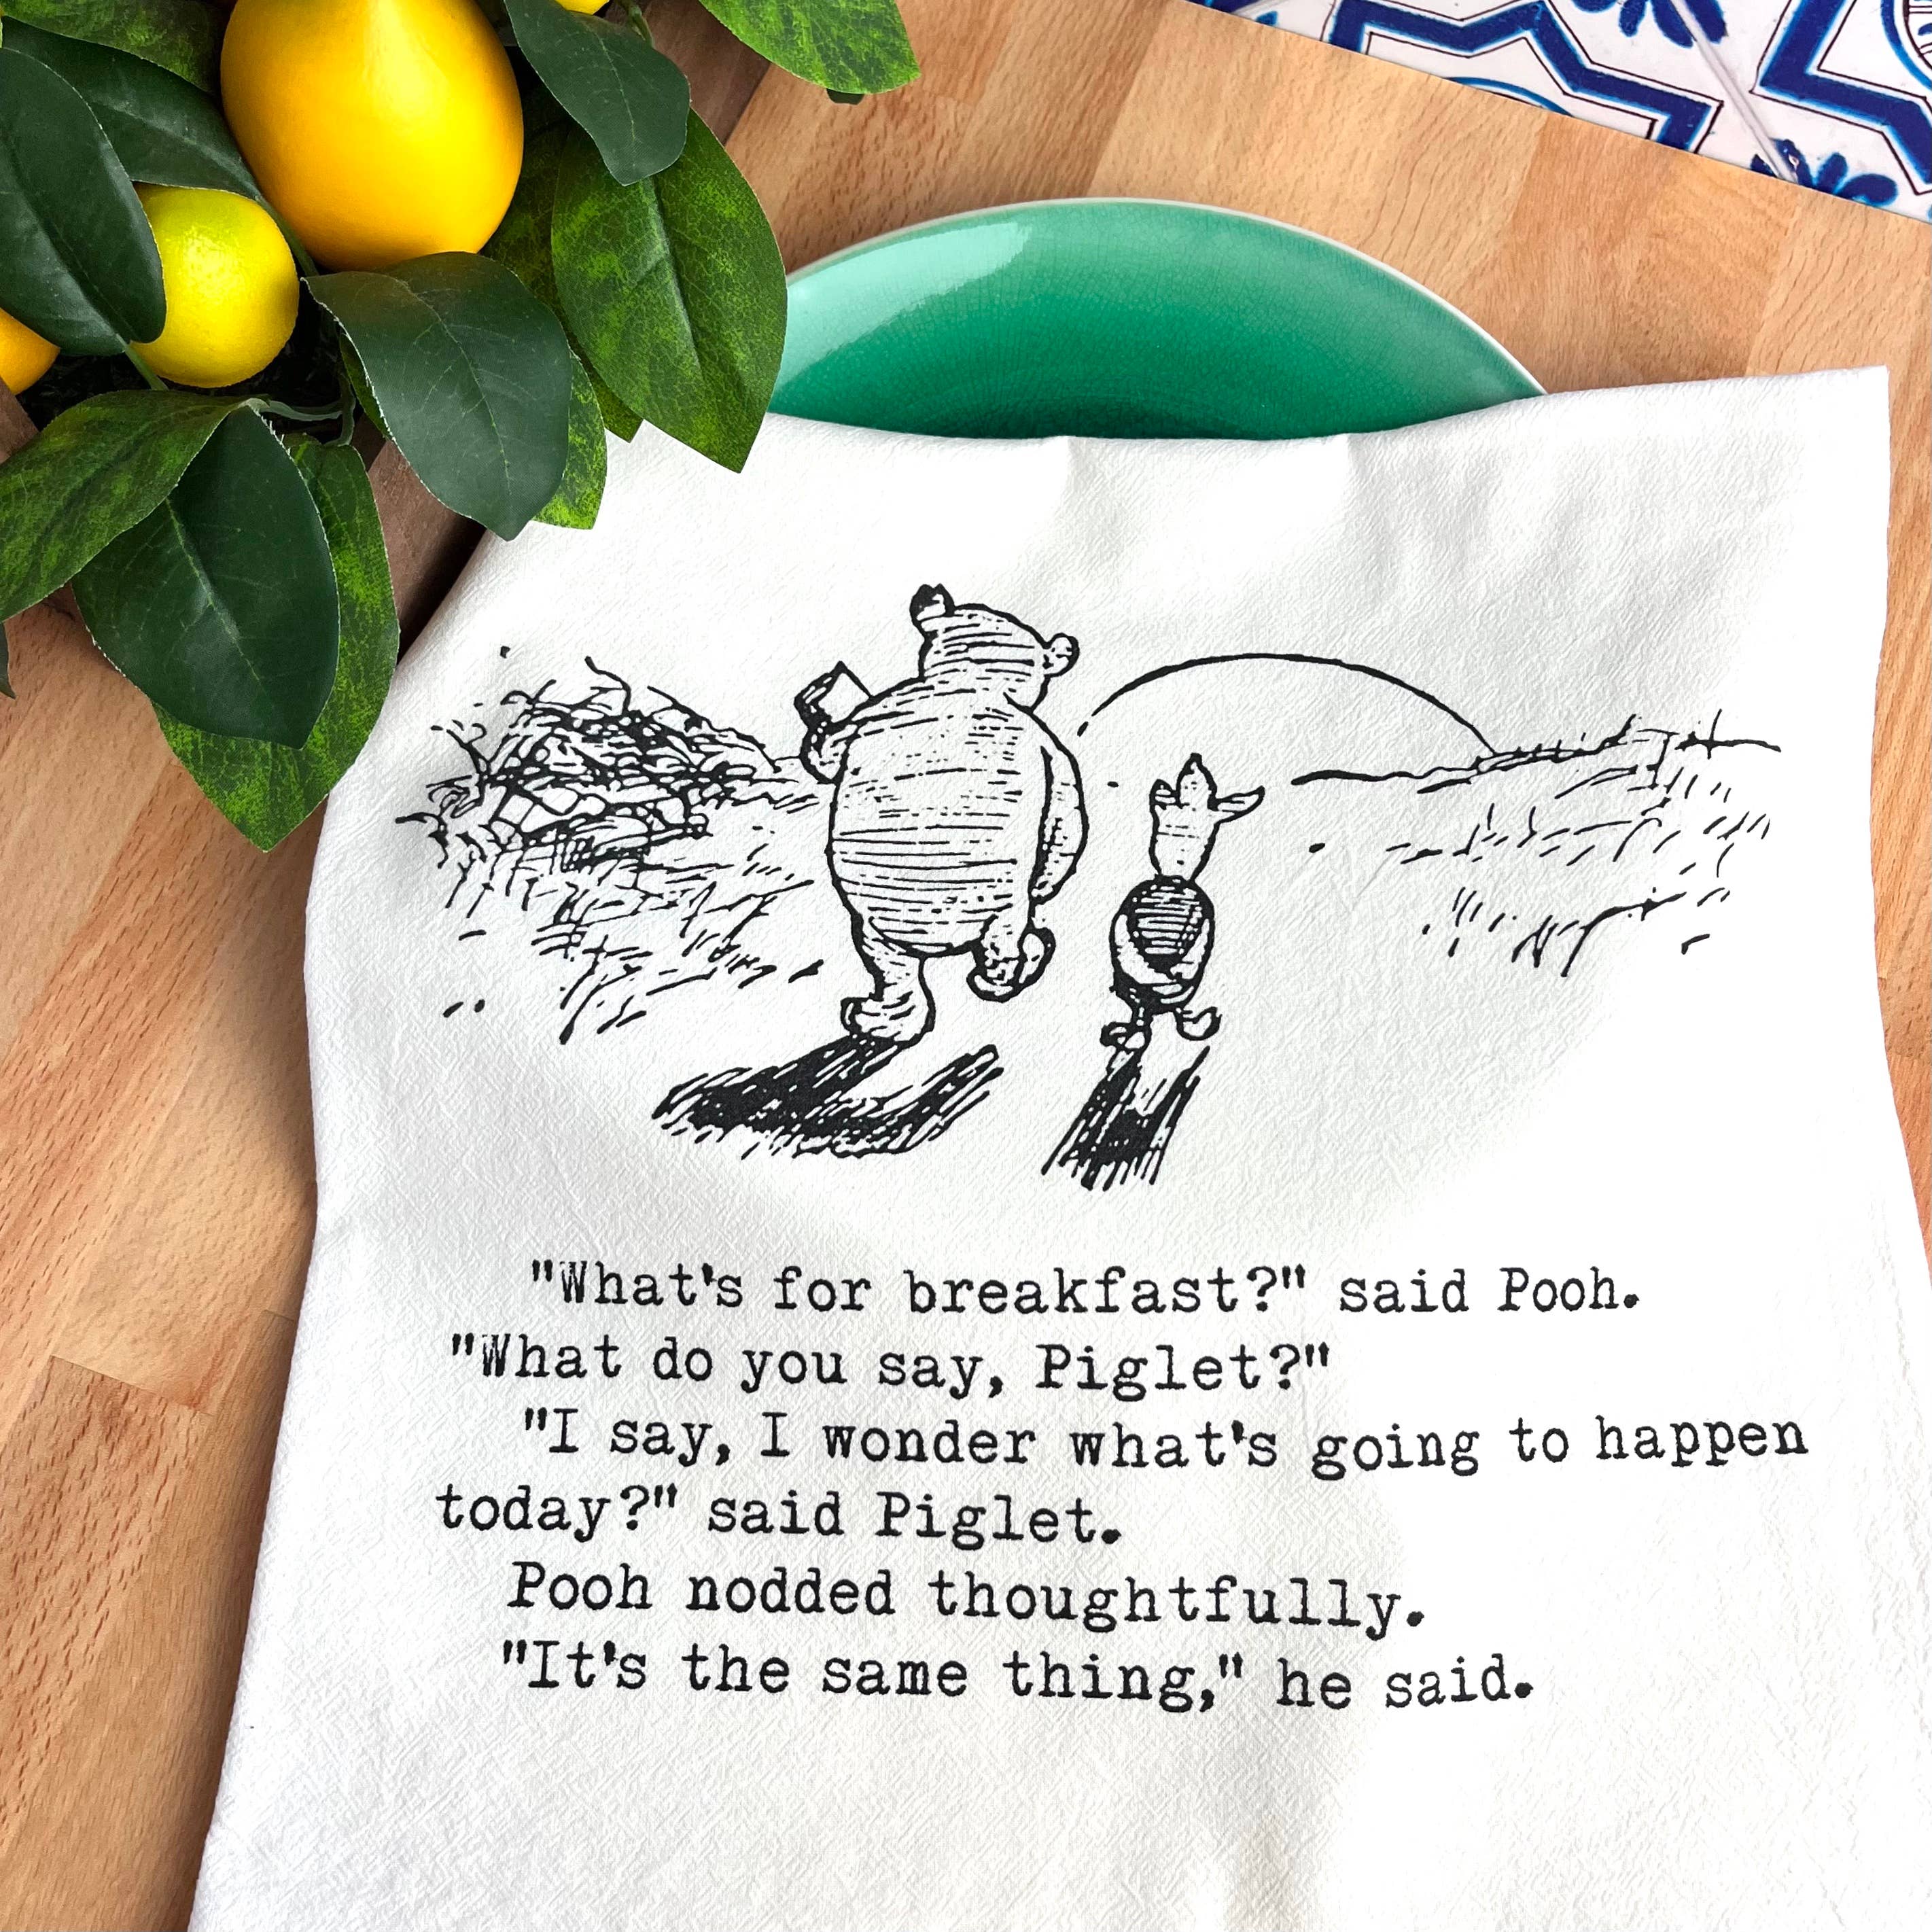 "What's for breakfast?" said Pooh.
"What do you say, Piglet?"
"I say, I wonder what's going to happen
today?" said Piglet.
Pooh nodded thoughtfully.
"It's the same thing," he said.